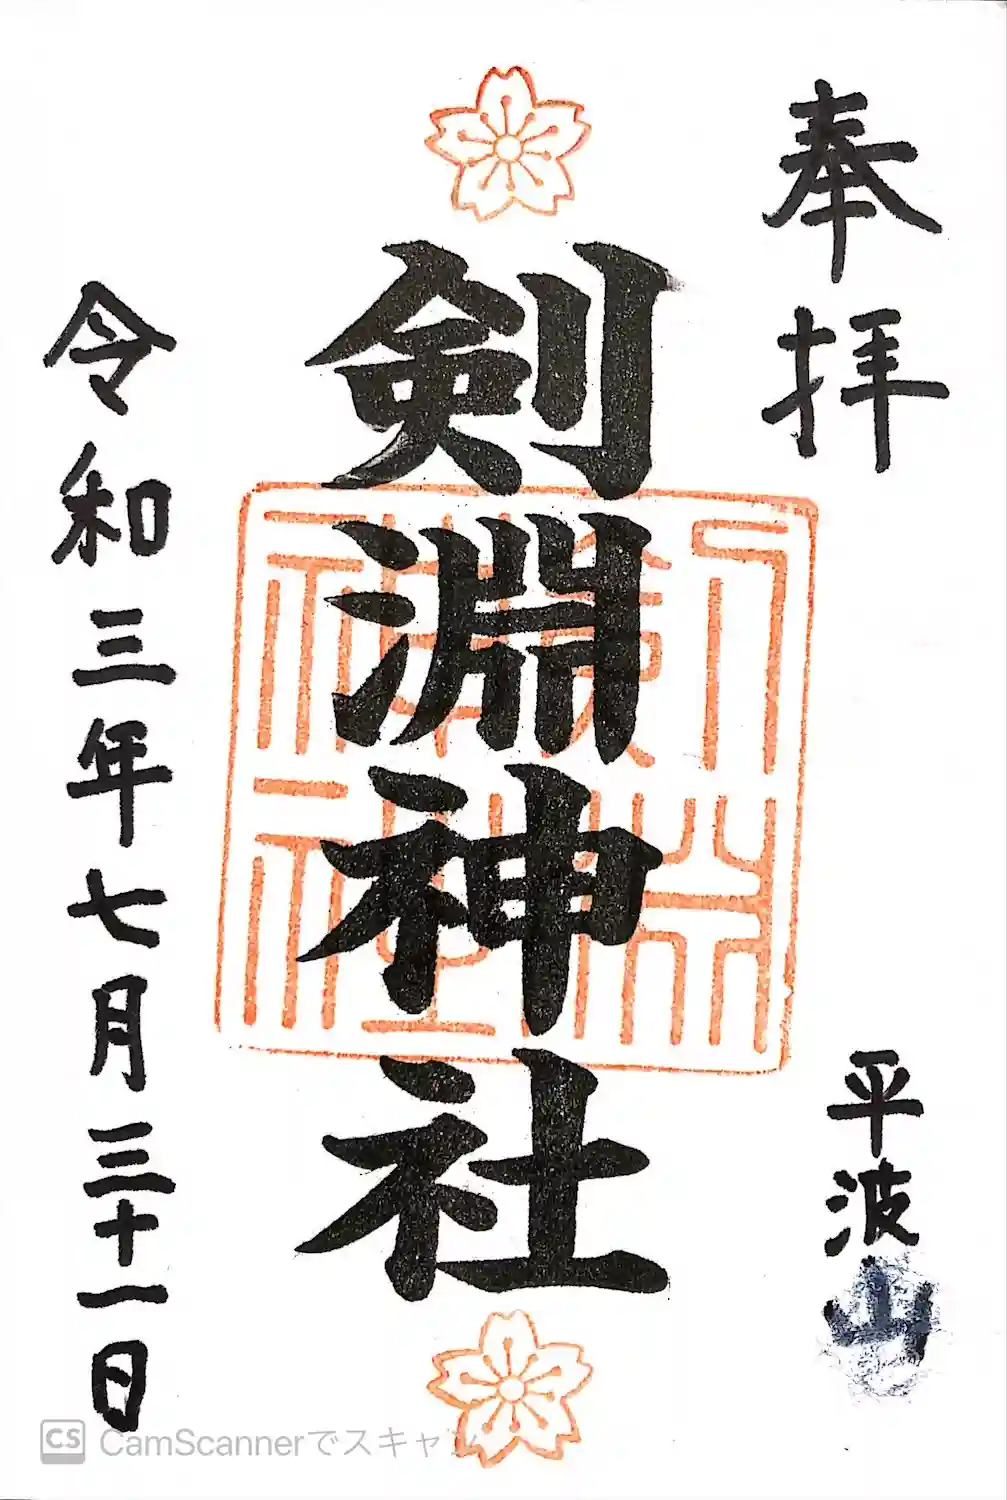 奉拝
平波山
剣淵神社
令和三年七月三十一日
CS CamScannerでスキャン